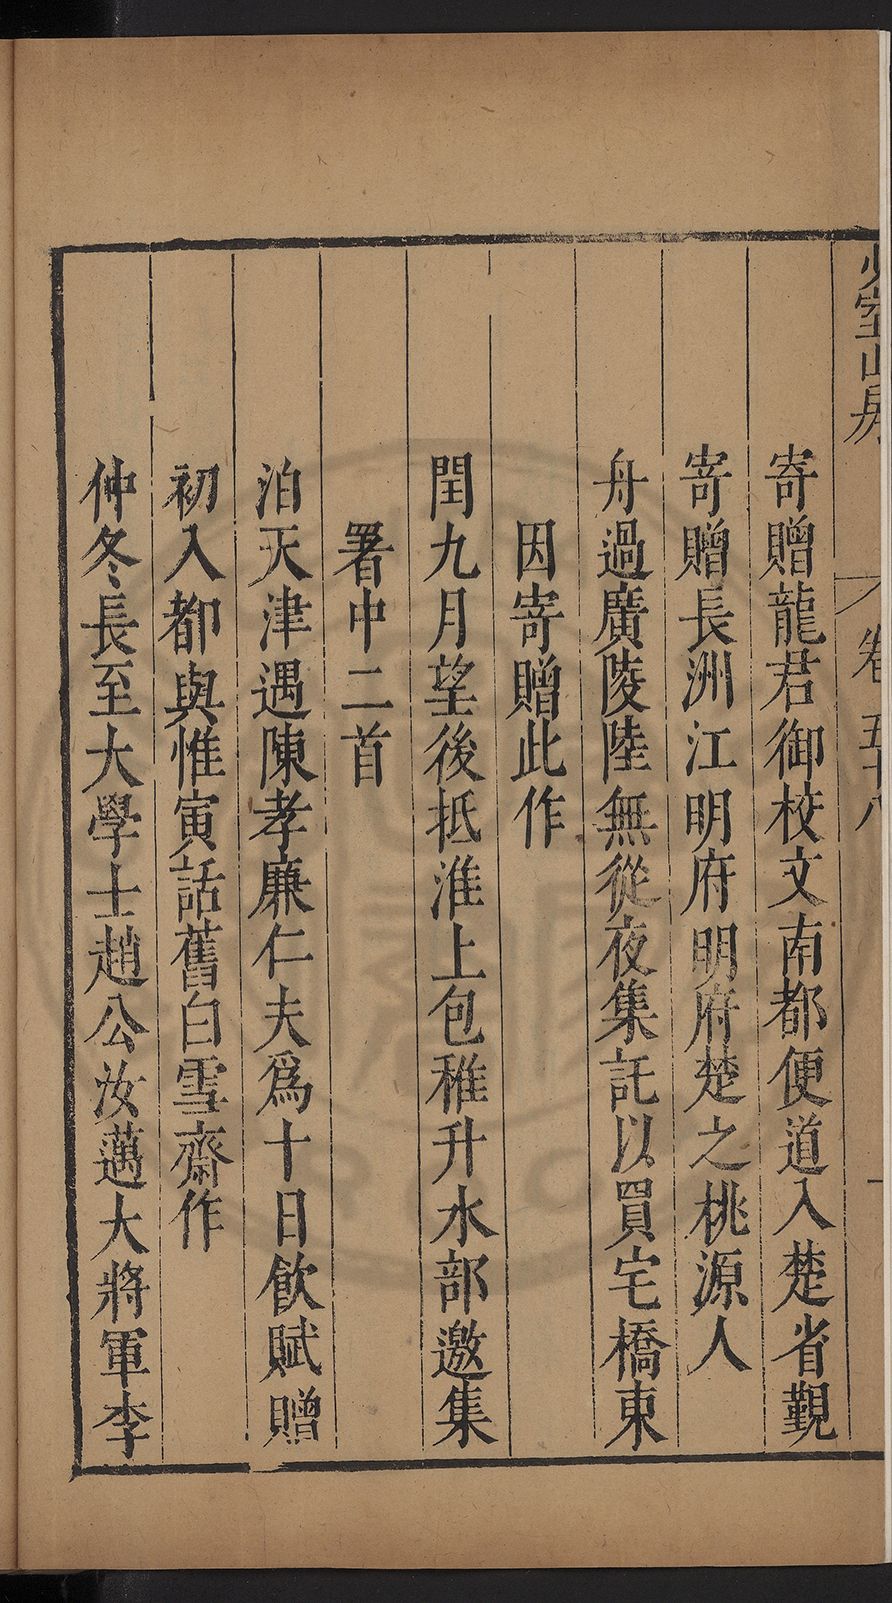 少室山房 卷五十八
寄贈龍君御校文南都便道入楚省覲
寄贈長洲江明府明府楚之桃源人
舟過廣陵陸無從夜集託以買宅橋東
因寄贈此作
閏九月望後抵淮上包稚升水部邀集
署中二首
泊天津遇陳孝廉仁夫爲十日飲賦贈
初入都與惟寅話舊白雪齋作
仲冬長至大學士趙公汝邁大將軍李